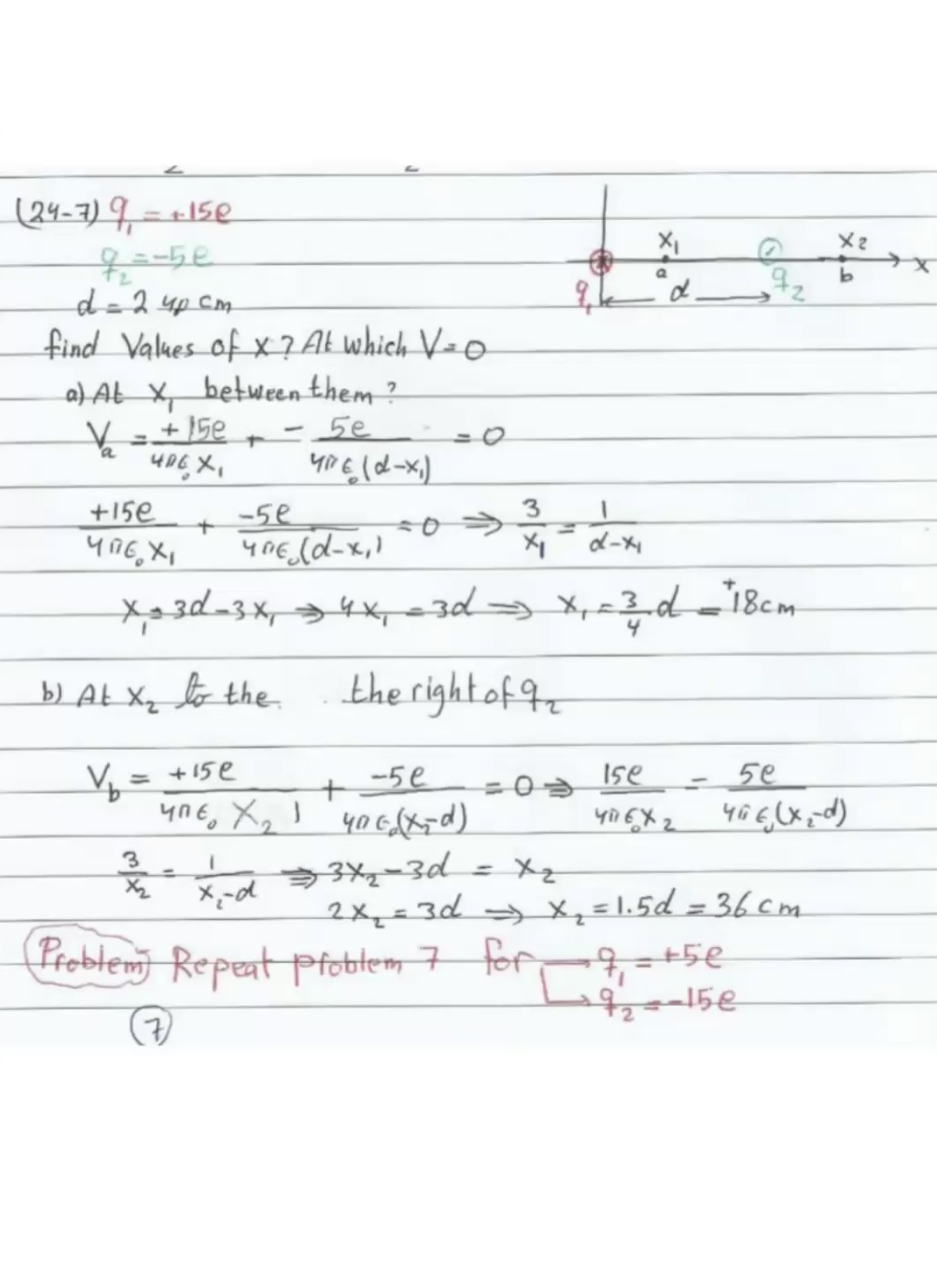 (24-7) q₁ = +15e
q₂ = -5e
d = 24.0 cm
x₁ x₂
a b x
q₁ d q₂
find Values of x? At which V=0
a) At x₁ between them?
Vₐ = +15e/4πϵ₀x₁ + - 5e/4πϵ₀(d-x₁) = 0
+15e/4πϵ₀x₁ + -5e/4πϵ₀(d-x₁) = 0 ⇒ 3/x₁ = 1/d-x₁
x₁ = 3d-3x₁ ⇒ 4x₁ = 3d ⇒ x₁ = 3/4 d = +18cm
b) At x₂ to the the right of q₂
V_b = +15e/4πϵ₀ x₂ + -5e/4πϵ₀(x₂-d) = 0 ⇒ 15e/4πϵ₀x₂ = 5e/4πϵ₀(x₂-d)
3/x₂ = 1/x₂-d ⇒ 3x₂-3d = x₂
2x₂ = 3d ⇒ x₂ = 1.5d = 36cm
Problem Repeat problem 7 for → q₁ = +5e
→ q₂ = -15e
7